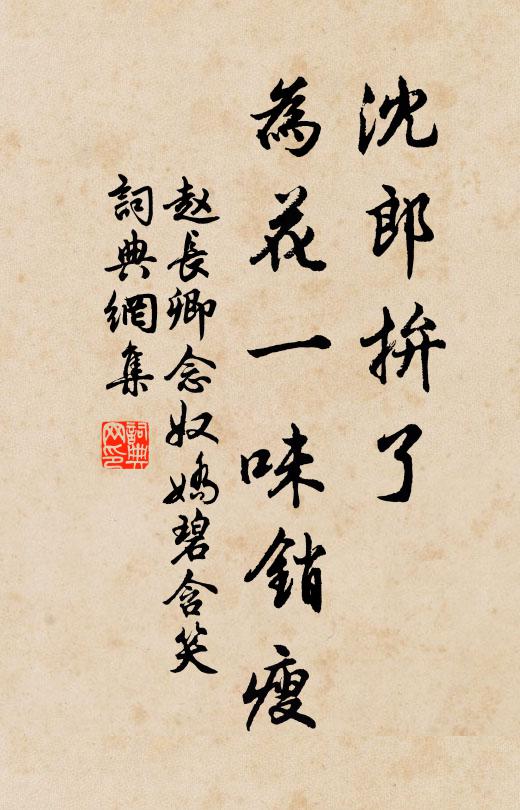 沈郎拚了
為花一味銷瘦
赵長卿念奴嬌碧含笑
詞典網集
詞典
网印